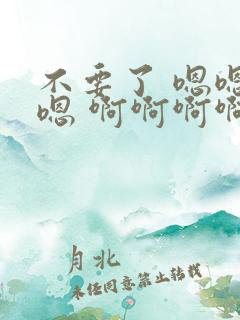 不要了 嗯嗯
嗯 啊啊啊啊
月北
未经同意禁止转载